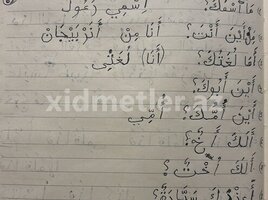 مَا اسْمُكَ؟ اِسْمِي رَسُول
مِنْ أَيْنَ أَنْتَ؟ أَنَا مِنْ أَذَرْبَيْجَان
مَا لُغَتُكَ؟ (أَنَا) لُغَتِي
أَيْنَ أَبُوكَ؟
أَيْنَ أُمُّكَ؟ أُمِّي
أَلَكَ أَخٌ؟
أَلَكَ أُخْتٌ؟
xidmetler.az